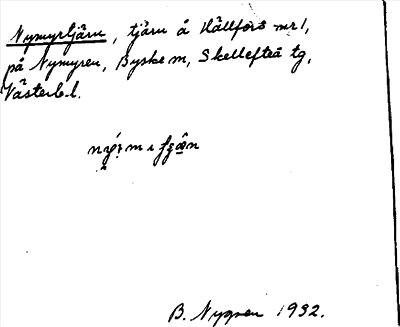 Nymyrtjärn, tjärn å Hällfors nr 1,
på Nymyren, Byske sn, Skellefteå tg,
Västerb. l.
B. Nygren 1932.